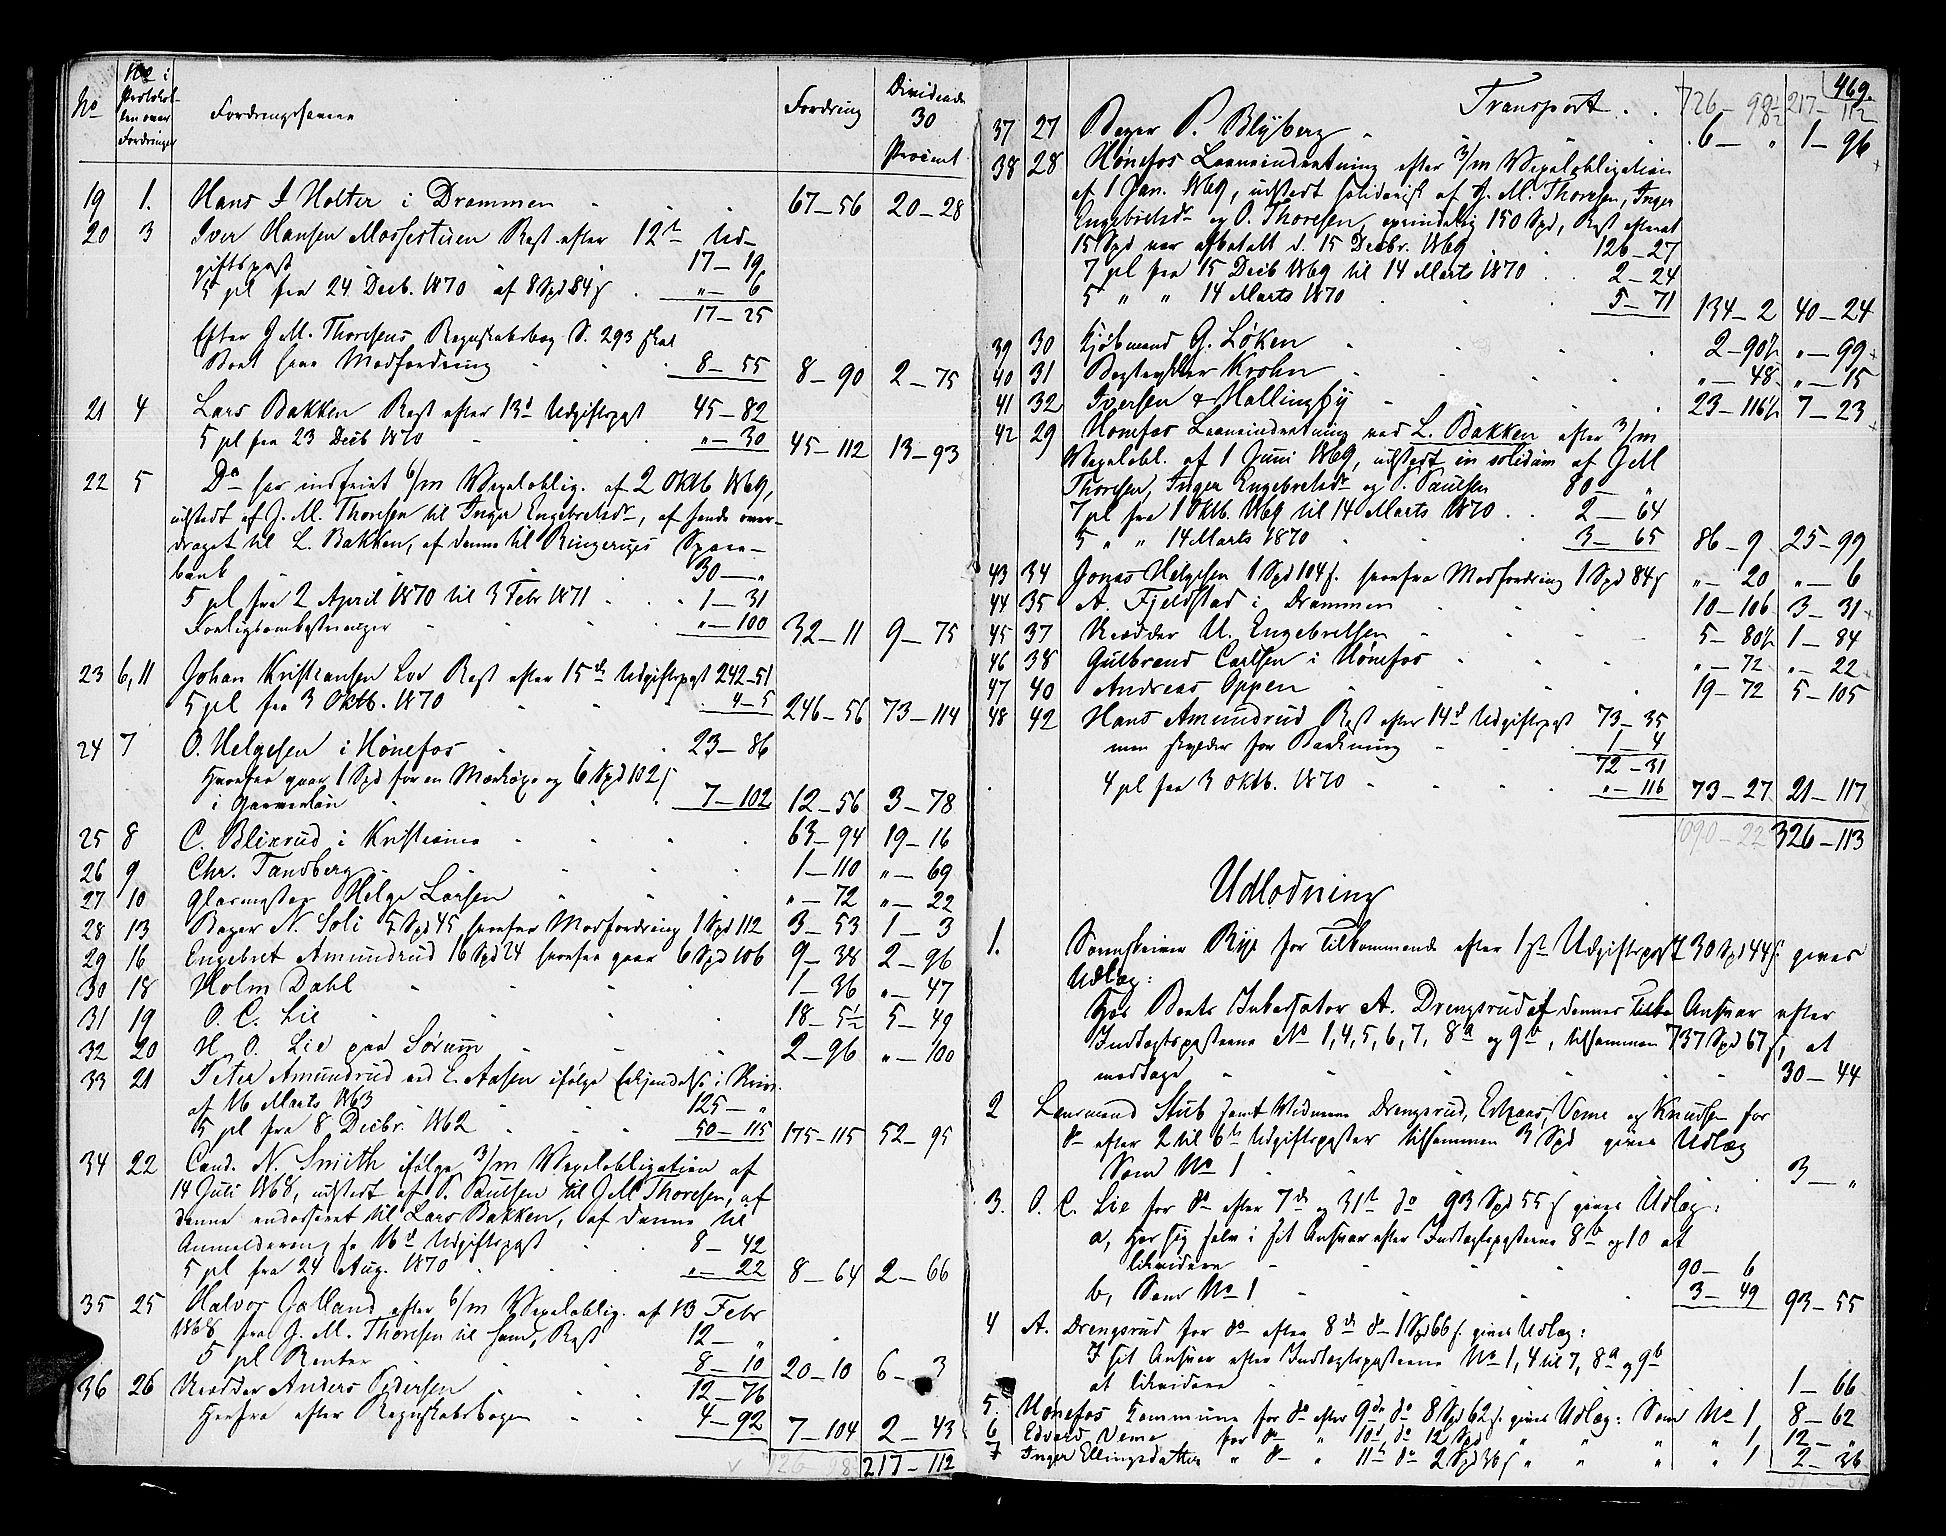 No | No i Protokollen over Fordringer | Fordringshavere | Fordring | Dividende 30 Procent
19 1. Hans J Holter i Drammen 67–56 20–28
20 3 Iver Hansen Mossestuen Rest efter 12te Ud-
giftspost 17–19
5 pCt fra 24 Decb. 1870 af 8 Spd 84 s „– 6
17–25
Efter J. M. Thoresens Regnskabsbog S. 293 skal
Boet have Modfordring 8–55 8–90 2–75
21 4 Lars Bakken Rest efter 13d Udgiftspost 45–82
5 pCt fra 23 Decb 1870 „–30 45–112 13–93
22 5 Do har indfriet 6/m Vexeloblig. af 2 Oktb 1869,
udstedt af J. M. Thoresen til Inger Engebretsdr, af hende over-
draget til L. Bakken, af denne til Ringeriges Spare-
bank 30–„
5 pCt fra 2 April 1870 til 3 Febr 1871 1–31
Forligsomkostninger „–100 32–11 9–75
23 6,11 Johan Kristiansen Lov Rest efter 15de Udgiftspost 242–51
5 pCt fra 3 Oktb. 1870 4–5 246–56 73–114
24 7 O. Helgesen i Hønefos 23–86
Herfra gaar 1 Spd for en og 6 Spd 102 s
i Garverløn 7–102 12–56 3–78
25 8 C. Blixrud i Kristiania 63–94 19–16
26 9 Chr. Tandberg 1–110 „–69
27 10 Glarmester Helge Larsen „–72 „–22
28 13 Bager N. Soli 5 Spd 45 herfra Modfordring 1 Spd 112 3–53 1–3
29 16 Engebret Amundrud 16 Spd 24 herfra gaar 6 Spd 106 9–38 2–96
30 18 Holm Dahl 1–36 „–47
31 19 O. C. Lie 18–5½ 5–49
32 20 H. O. Lie paa Sørum 2–96 „–100
33 21 Peter Amundrud ved L. Aasen ifølge Erkjendelse i
af 16 Marts 1863 125–„
5 pCt fra 8 Decbr. 1862 50–115 175–115 52–95
34 22 Cand. N. Smith ifølge 3/m Vexelobligation af
14 Juli 1868, udstedt af P. Paulsen til J. M. Thoresen, af
denne endosseret til Lars Bakken, af denne til
Anmelderen, se 16d Udgiftspost 8–42
5 pCt fra 24 Aug. 1870 „–22 8–64 2–66
35 25 Halvor Galland efter 6/m Vexeloblig. af 13 Febr
1868 fra J. M. Thoresen til ham, Rest 12–„
5 pCt Renter 8–10 20–10 6–3
36 26 Anders Pedersen 12–76
Herfra efter Regnskabsbogen 4–92 7–104 2–43
726–98 217–112
469.
Transport 726–98½ 217–112
37 27 Bager P. Blyberg 6–„ 1–96
38 28 Hønefos Laaneindretning efter 3/m Vexelobligation
af 1 Jan. 1869, udstedt solidarisk af J. M. Thoresen, Inger
Engebretsdr og O. Thoresen, oprindelig 150 Spd, Rest efterat
15 Spd var afbetalt d. 15 Decbr. 1869 126–27
7 pCt fra 15 Decb 1869 til 14 Marts 1870 2–24
5 „ „ 14 Marts 1870 5–71 134–2 40–24
39 30 Kjøbmand G. Løken 2–90½ „–99
40 31 Bogtrykker Krohn „–48 „–15
41 32 Iversen & Hallingby 23–116½ 7–23
42 29 Hønefos Laaneindretning ved L. Bakken efter 3/m
Vexelobl. af 1 Juni 1869, udstedt in solidum af J. M
Thoresen, Inger Engebretsdr og P. Paulsen 80–„
7 pCt fra 1 Oktb. 1869 til 14 Marts 1870 2–64
5 „ „ 14 Marts 1870 3–65 86–9 25–99
43 34 Jonas Helgesen 1 Spd 104 s. herfra Modfordring 1 Spd 84 s „–20 „–6
44 35 A. Fjeldstad i Drammen 10–106 3–31
45 37 U. Engebretsen 5–80½ 1–84
46 38 Gulbrand Carlsen i Hønefos „–72 „–22
47 40 Andreas Oppen 19–72 5–105
48 42 Hans Amundrud Rest efter 14d Udgiftspost 73–35
men skylder for Barkning 1–4
72–31
4 pCt fra 3 Oktb. 1870 „–116 73–27 21–117
1090–22 326–113
Udlodning
1. Sorenskriver Rye for Tilkommende efter 1ste Udgiftspost 30 Spd 44 s. gives
Udlæg:
Hos Boets Inkassator A. Drengsrud af dennes Ansvar efter
Indtægtsposterne No 1, 4, 5, 6, 7, 8a og 9b, tilsammen 737 Spd 67 s, at
modtage 30–44
2 Lensmand Stub samt Vidnerne Drengsrud, Veme og Knudsen for
do efter 2 til 6te Udgiftsposter tilsammen 3 Spd gives Udlæg
Som No 1 3–„
3. O. C. Lie for do efter 7de og 31te do 93 Spd 55 s gives Udlæg:
a, Hos sig selv i sit Ansvar efter Indtægtsposterne 8b og 10 at
likvidere 90–6
b, Som No 1 3–49 93–55
4 A. Drengsrud for do efter 8de do 1 Spd 66 s. gives Udlæg:
I sit Ansvar efter Indtægtsposterne No 1, 4 til 7, 8a og 9b
at likvidere 1–66
5. Hønefos Kommune for do efter 9de do 8 Spd 62 s. gives Udlæg: Som No 1 8–62
6 Edvard Veme for do „ 10d do 12 Spd „ „ „ „ 1 12–„
7 Inger Ellingsdatter „ do „ 11te do 2 Spd 36 s „ „ „ „ 1 2–36